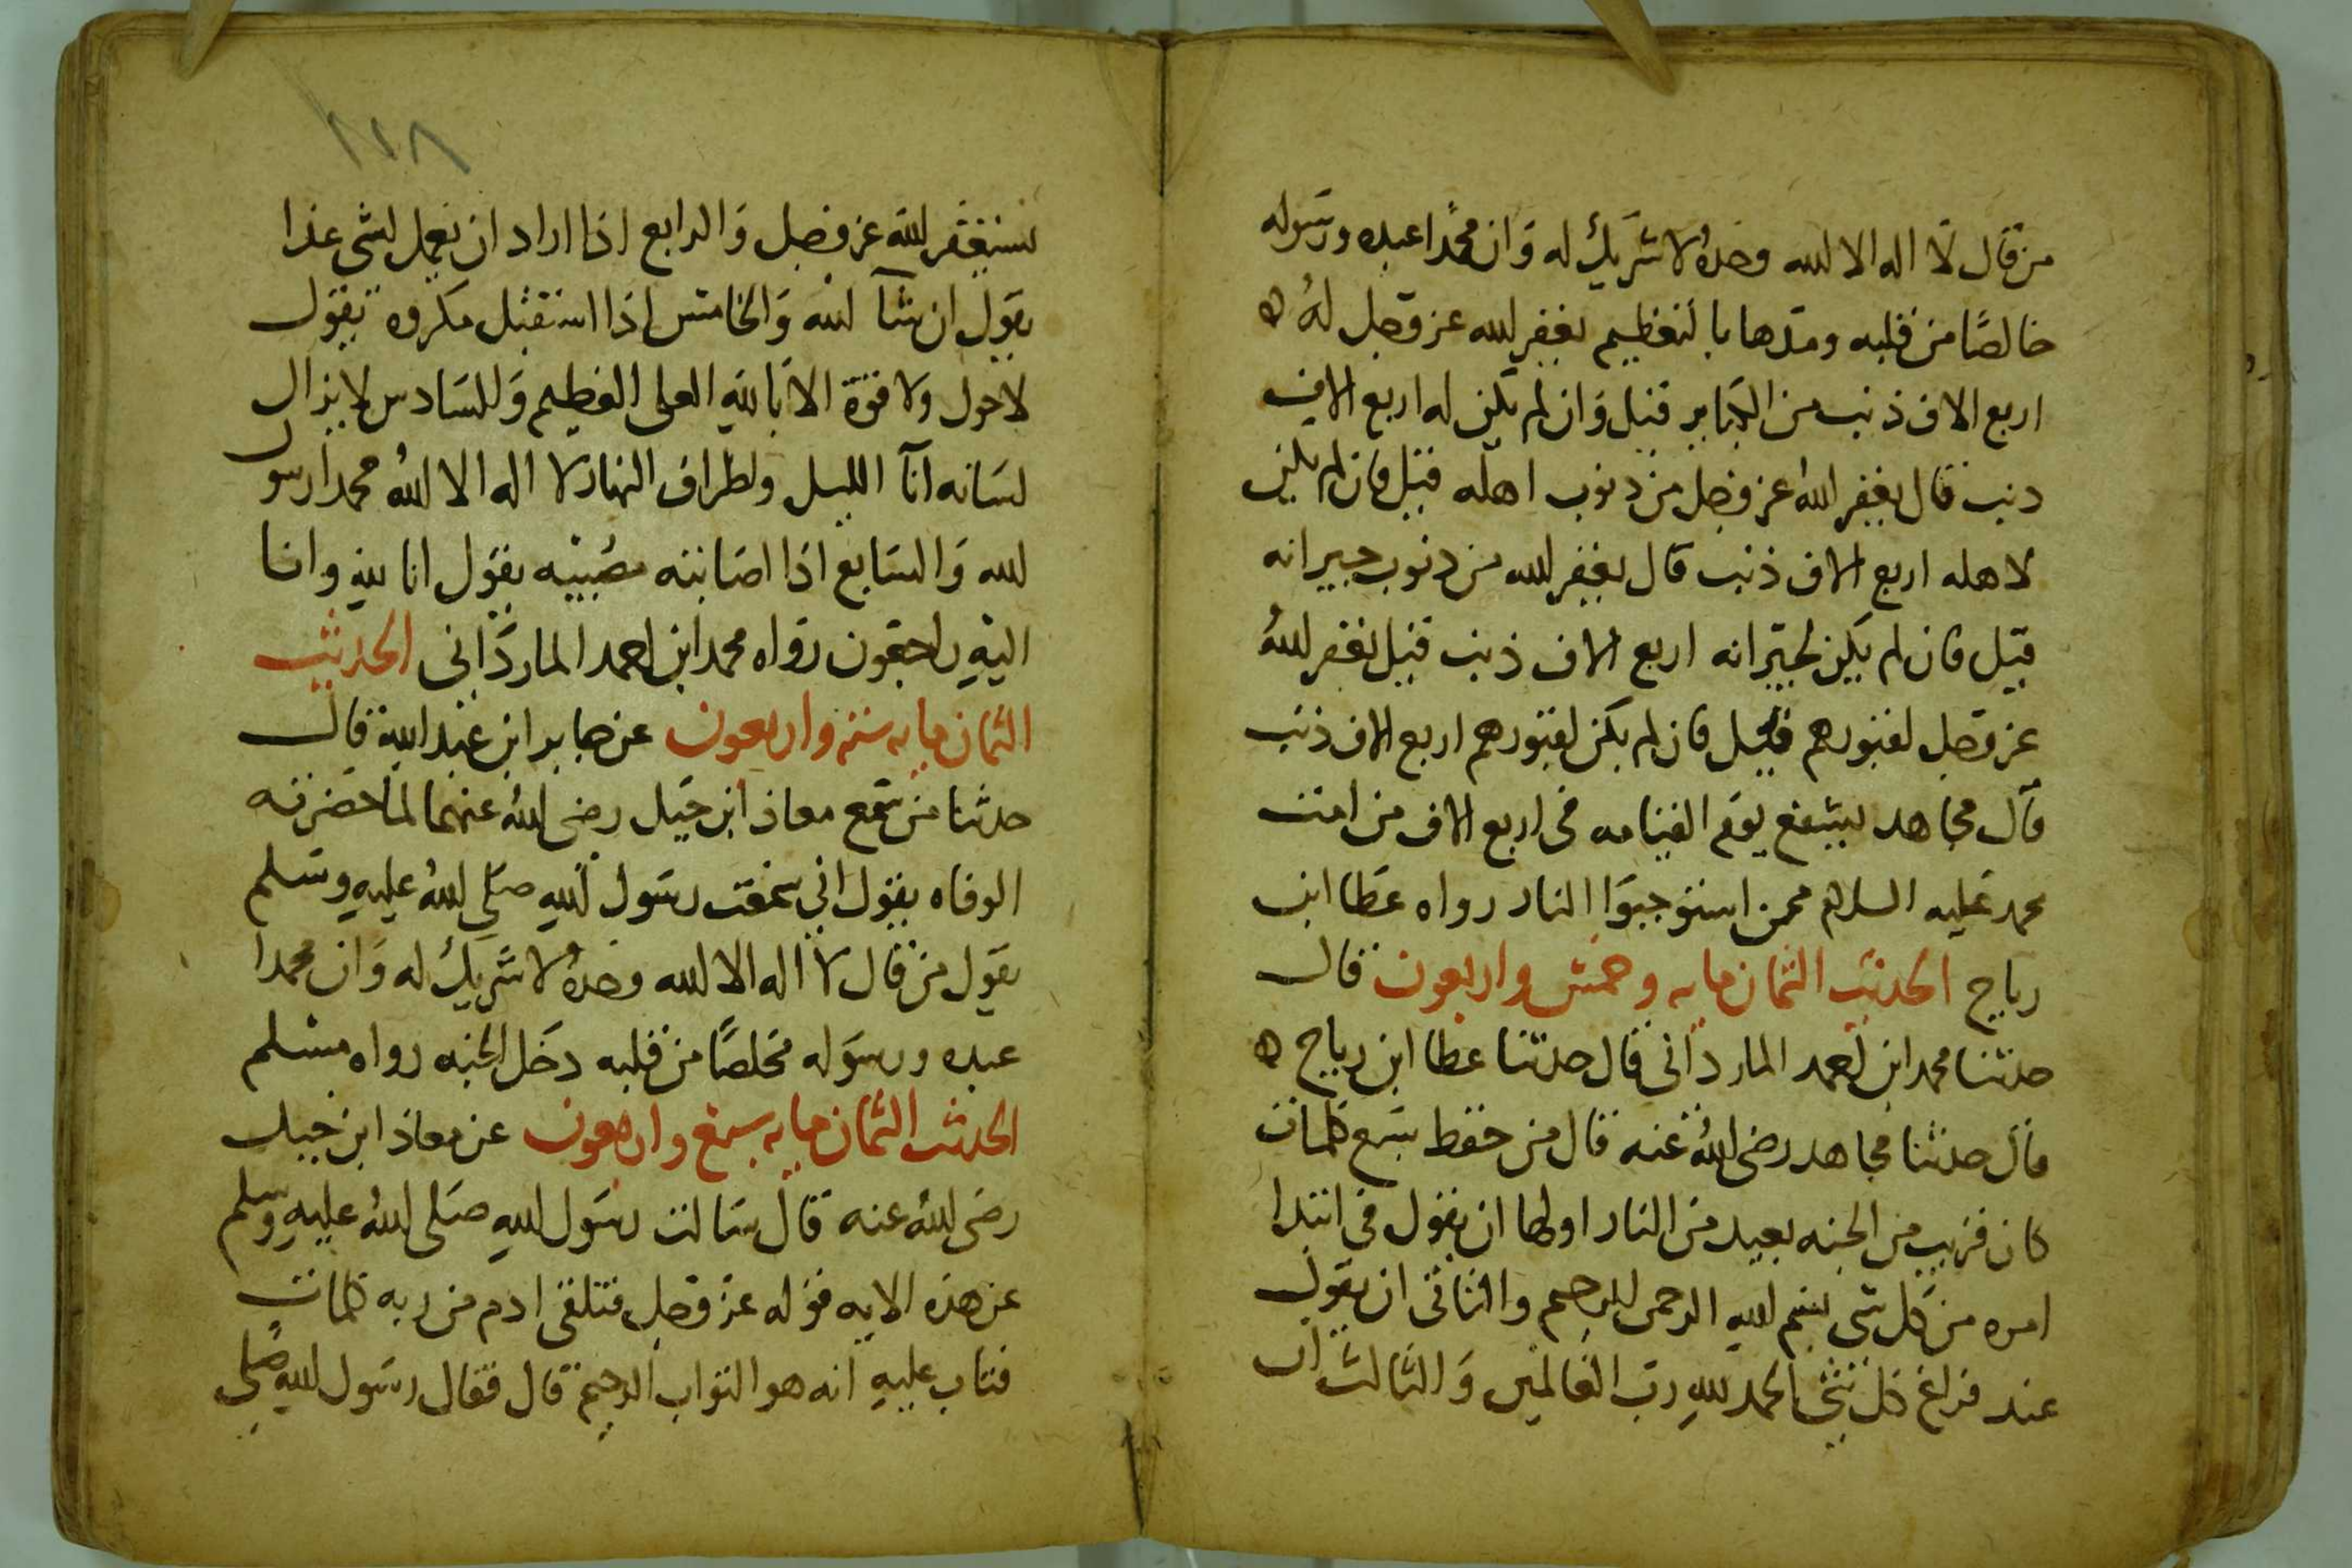 من قال لا اله الا الله وحده لا شريك له وان محمدا عبده ورسوله
خالصًا من قلبه ومدها بالتعظيم يغفر الله عز وجل له ه
اربع الاف ذنب من الكباير قيل وان لم يكن له اربع الاف
ذنب قال يغفر الله عز وجل من ذنوب اهله قيل فان لم يكن
لاهله اربع الاف ذنب قال يغفر الله من ذنوب جيرانه
قيل فان لم يكن لجيرانه اربع الاف ذنب قيل يغفر الله
عز وجل لقبورهم قيل فان لم يكن لقبورهم اربع الاف ذنب
قال مجاهد يشفع يوم القيامه في اربع الاف من امت
محمد عليه السلام ممن استوجبوا النار رواه عطا ابن
رباح الحديث الثمان مايه وخمس واربعون قال
حدثنا محمد ابن احمد الماردانى قال حدثنا عطا ابن رباح ه
قال حدثنا مجاهد رضى الله عنه قال من حفظ سبع كلمات
كان قريب من الجنه بعيد من النار اولها ان يقول في ابتدا
امره من كل شى بسم الله الرحمن الرحيم والثانى ان يقول
عند فراغ كل شى الحمد لله رب العالمين وَالثالث ان
يستغفر الله عز وجل وَالرابع اذا اراد ان يعمل لشى غدا
يقول ان شآ الله وَالخامس اذا استقبل مكروه يقول
لا حول ولا قوة الا بالله العلى العظيم وَالسادس لا يزال
لسانه انآ الليل واطراف النهار لا اله الا الله محمدا رسول
الله وَالسابع اذا اصابته مصيبه يقول انا لله وانا
اليه راجعون رواه محمد ابن احمد الماردانى الحديث
الثمان مايه سته واربعون عن جابر ابن عبد الله قال
حدثنا من سمع معاذ ابن جبل رضى الله عنهما لما حضرته
الوفاه يقول اني سمعت رسول الله صلى الله عليه وسلم
يقول من قال لا اله الا الله وحده لا شريك له وَان محمدا
عبده ورسوله مخلصًا من قلبه دخل الجنه رواه مسلم
الحديث الثمان مايه سبع واربعون عن معاذ ابن جبل
رضى الله عنه قال سالت رسول الله صلى الله عليه وسلم
عن هذه الايه قوله عز وجل فتلقى ادم من ربه كلمات
فتاب عليه انه هو التواب الرحيم قال فقال رسول الله صلى